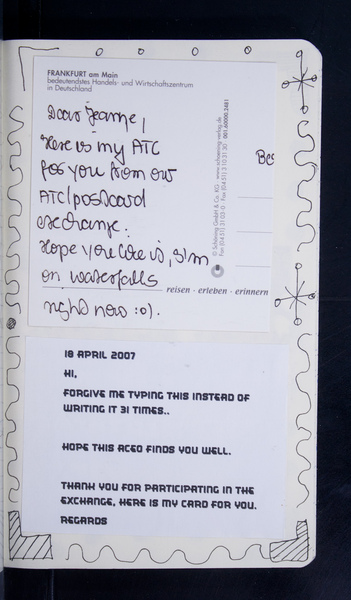 FRANKFURT am Main
bedeutendstes Handels- und Wirtschaftszentrum
in Deutschland
Dear Jeanne,
Here is my ATC
for you from our
ATC/postcard
exchange.
Hope you like it, I'm
on waterfalls
right now :o).
reisen · erleben · erinnern
© Schöning GmbH & Co. KG · www.schoening-verlag.de
18 APRIL 2007
HI,
FORGIVE ME TYPING THIS INSTEAD OF
WRITING IT 31 TIMES..
HOPE THIS ACEO FINDS YOU WELL.
THANK YOU FOR PARTICIPATING IN THE
EXCHANGE, HERE IS MY CARD FOR YOU.
REGARDS